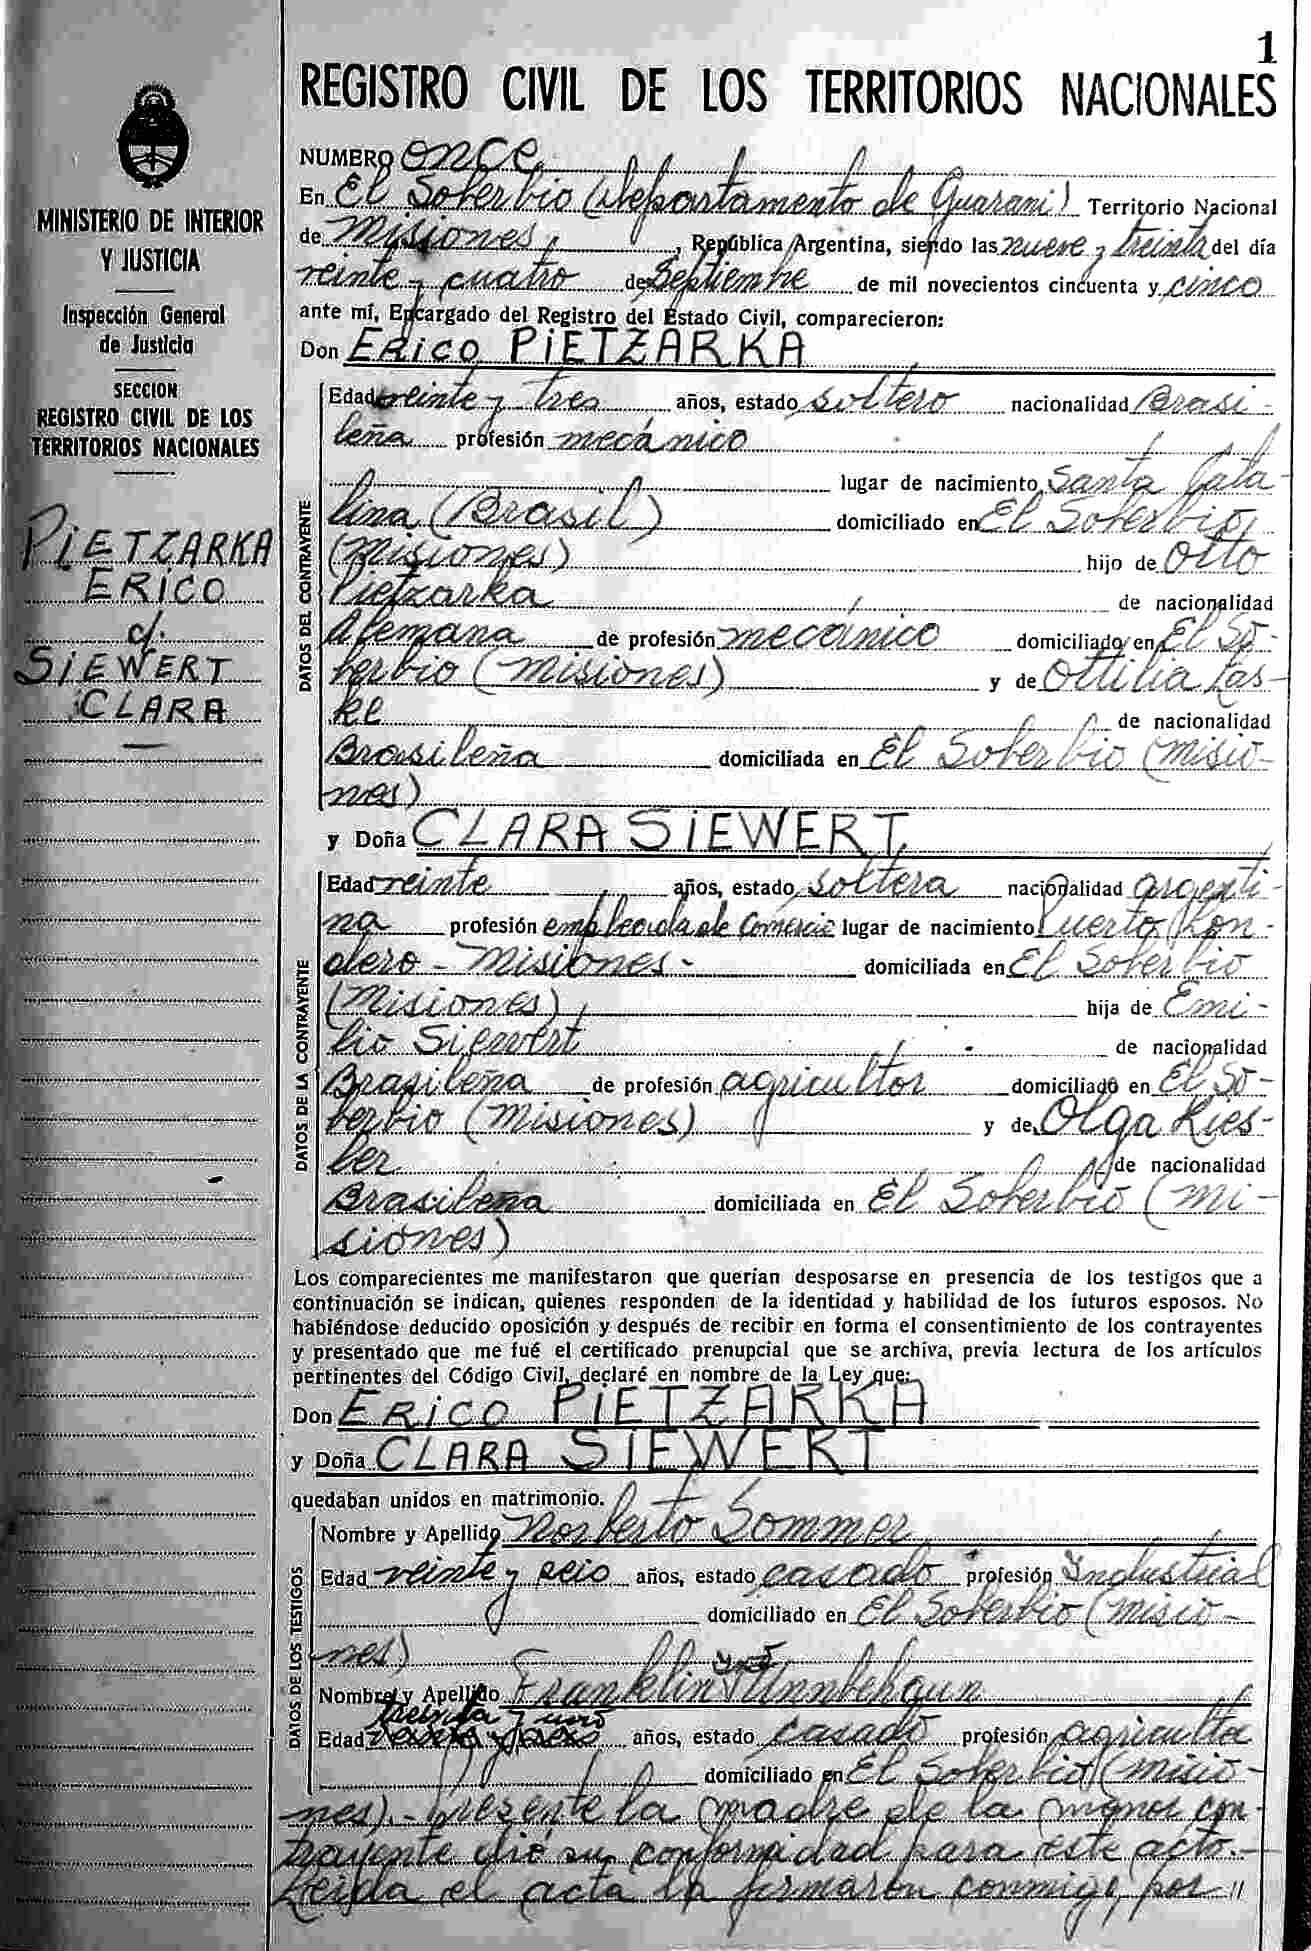 1
REGISTRO CIVIL DE LOS TERRITORIOS NACIONALES
MINISTERIO DE INTERIOR
Y JUSTICIA
Inspección General
de Justicia
SECCION
REGISTRO CIVIL DE LOS
TERRITORIOS NACIONALES
PIETZARKA
ERICO
c/.
SIEWERT
CLARA
NUMERO once
En El Soberbio (departamento de Guaraní) Territorio Nacional
de Misiones, República Argentina, siendo las nueve y treinta del día
veinte y cuatro de Septiembre de mil novecientos cincuenta y cinco
ante mí, Encargado del Registro del Estado Civil, comparecieron:
Don ERICO PIETZARKA
DATOS DEL CONTRAYENTE
Edad veinte y tres años, estado soltero nacionalidad Brasi-
leña profesión mecánico
lugar de nacimiento Santa Cata-
lina (Brasil) domiciliado en El Soberbio,
(Misiones) hijo de Otto
Pietzarka de nacionalidad
Alemana de profesión mecánico domiciliado en El So-
berbio (Misiones) y de Ottilia Las-
ke de nacionalidad
Brasileña domiciliada en El Soberbio (Misio-
nes)
y Doña CLARA SIEWERT
DATOS DE LA CONTRAYENTE
Edad veinte años, estado soltera nacionalidad argenti-
na profesión empleada de Comercio lugar de nacimiento Puerto
- Misiones - domiciliada en El Soberbio
(Misiones) hija de Emi-
lio Siewert de nacionalidad
Brasileña de profesión agricultor domiciliado en El So-
berbio (Misiones) y de Olga Ries-
ber de nacionalidad
Brasileña domiciliada en El Soberbio (Mi-
siones)
Los comparecientes me manifestaron que querían desposarse en presencia de los testigos que a
continuación se indican, quienes responden de la identidad y habilidad de los futuros esposos. No
habiéndose deducido oposición y después de recibir en forma el consentimiento de los contrayentes
y presentado que me fué el certificado prenupcial que se archiva, previa lectura de los artículos
pertinentes del Código Civil, declaré en nombre de la Ley que:
Don ERICO PIETZARKA
y Doña CLARA SIEWERT
quedaban unidos en matrimonio.
DATOS DE LOS TESTIGOS
Nombre y Apellido Norberto Sommer
Edad veinte y seis años, estado casado profesión Industrial
domiciliado en El Soberbio (Misio-
nes)
Nombre y Apellido Franklin Unnbehaun
treinta y uno
Edad años, estado casado profesión agriculto
domiciliado en El Soberbio (Misio-
nes).- Presente la madre de la menor con-
trayente dió su conformidad para este acto.-
Leída el acta la firmaron conmigo, por "